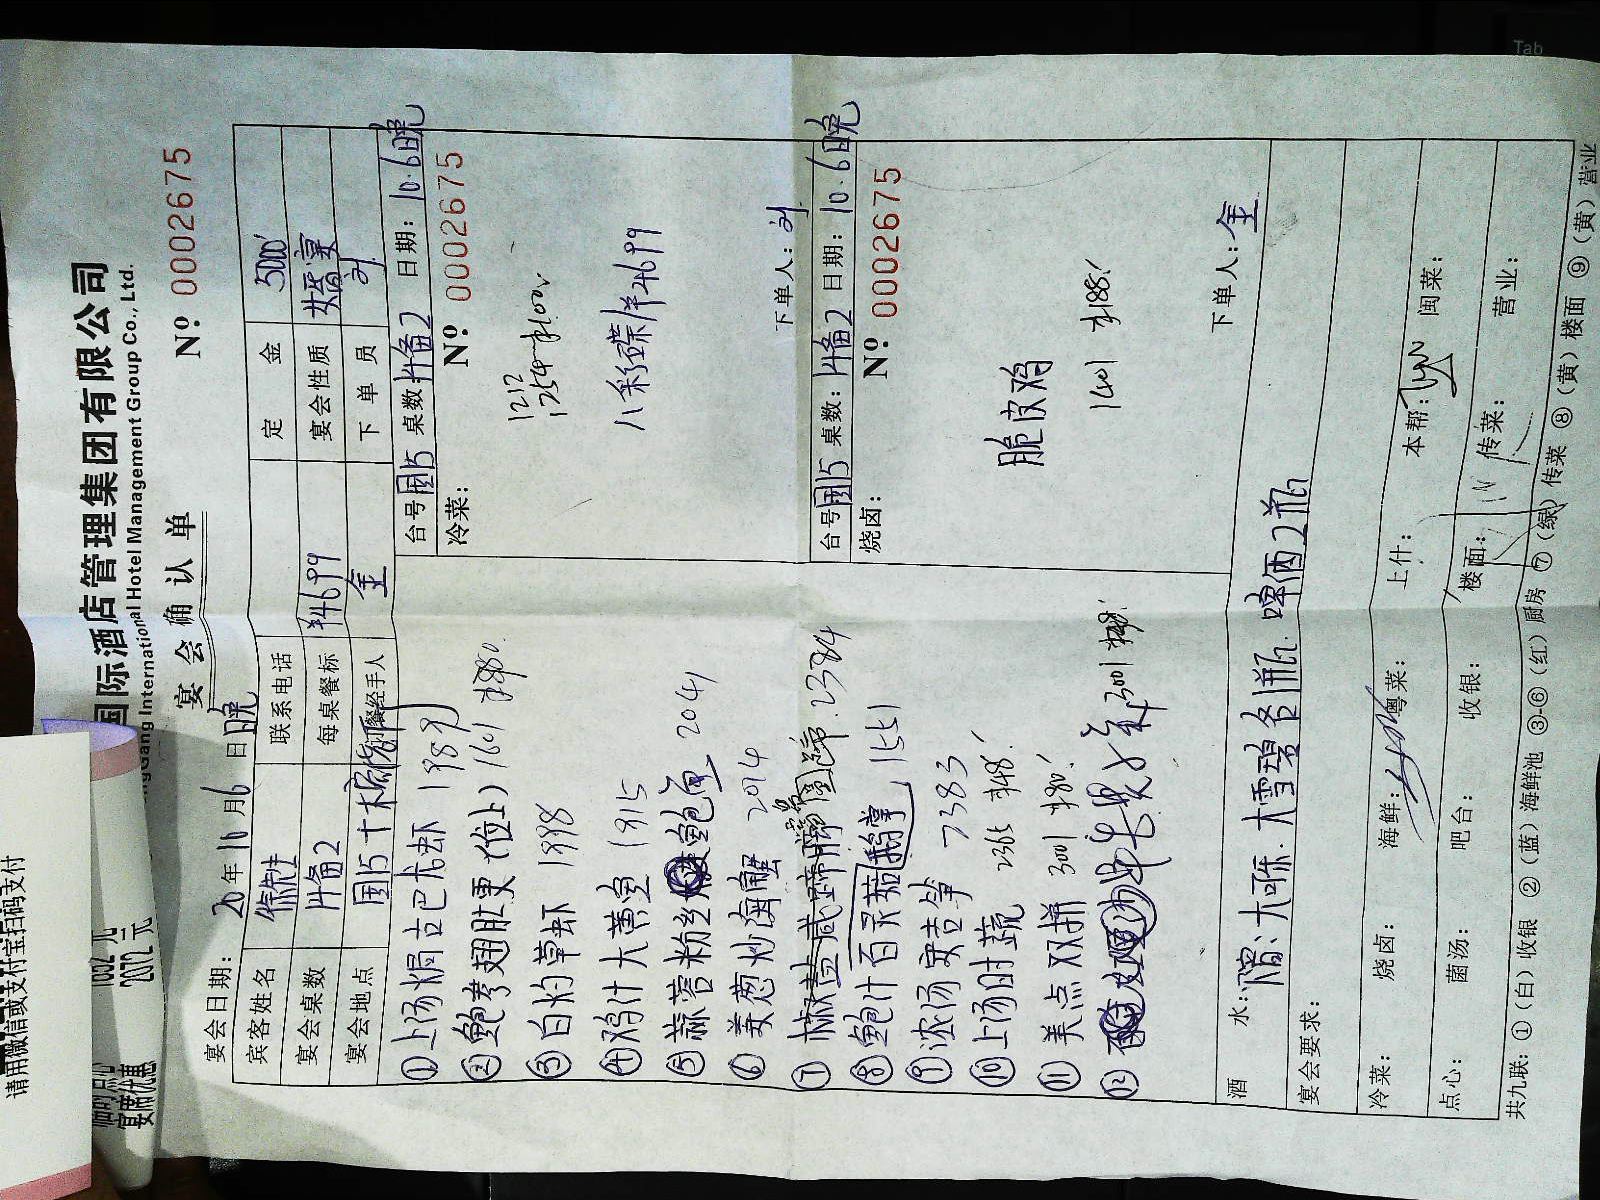 请用微信或支付宝扫码支付
宴席优惠
2072 元
国际酒店管理集团有限公司
Gang International Hotel Management Group Co., Ltd.
宴 会 确 认 单
№ 0002675
宴会日期： 20 年 10 月 6 日 晚
宾客姓名 联系电话 定 金 5000
宴会桌数 14备2 每桌餐标 ¥4699 宴会性质 婚宴
宴会地点 国15 订餐经手人 金 下 单 员
台号 国15 桌数：14备2 日期：10.6晚
冷菜： № 0002675
1212
八彩碟 4699
下单人：
台号 国15 桌数：14备2 日期：10.6晚
烧卤： № 0002675
脆皮鸡
1401 188
下单人：金
① 上汤焗古巴龙虾 1989
② 鲍参翅肚羹（位上）1601
③ 白灼草虾 1998
④ 鸡汁大黄鱼 1915
⑤ 蒜蓉粉丝鲍鱼 2041
⑥ 姜葱炒海蟹 2014
⑦ 2384
⑧ 鲍汁百灵菇鹅掌 1551
⑨ 浓汤安吉笋 7383
⑩ 上汤时蔬
⑪ 美点双拼 3001
⑫ 3001
酒 水：大可乐．大雪碧各1瓶．啤酒2瓶
宴会要求：
冷菜： 烧卤： 海鲜： 粤菜： 上什： 本帮： 闽菜：
点心： 菌汤： 吧台： 收银： 楼面： 传菜： 营业：
共九联：①（白）收银 ②（蓝）海鲜池 ③-⑥（红）厨房 ⑦（绿）传菜 ⑧（黄）楼面 ⑨（黄）营业
Tab